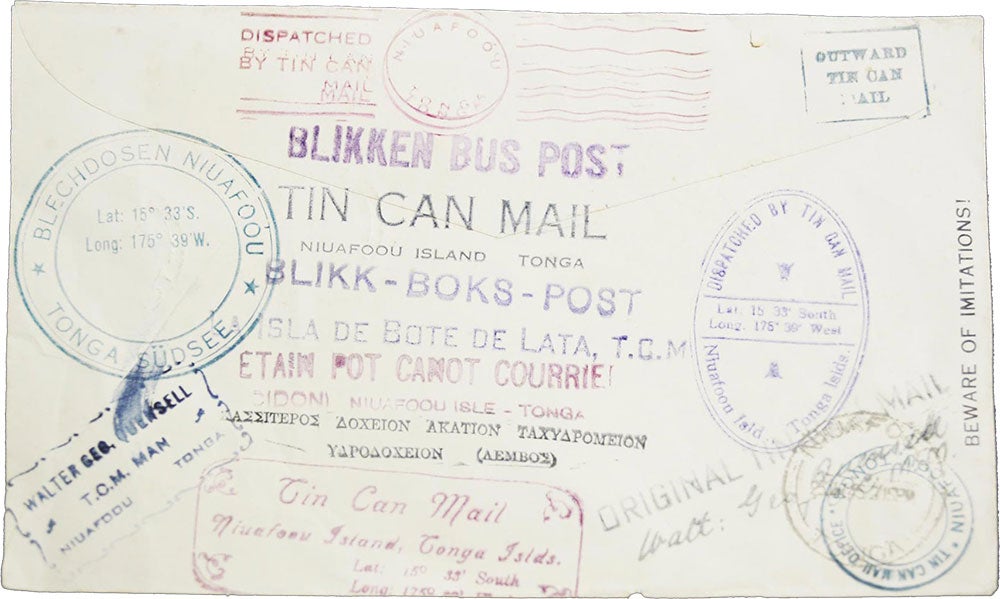 DISPATCHED
BY TIN CAN
MAIL
MAIL
NIUAFOOU
TONGA
OUTWARD
TIN CAN
MAIL
BLIKKEN BUS POST
TIN CAN MAIL
NIUAFOOU ISLAND TONGA
BLIKK-BOKS-POST
ISLA DE BOTE DE LATA, T.C.M
ETAIN POT CANOT COURRIE
NIUAFOOU ISLE - TONGA
ΚΑΣΣΙΤΕΡΟΣ ΔΟΧΕΙΟΝ ΑΚΑΤΙΟΝ ΤΑΧΥΔΡΟΜΕΙΟΝ
ΥΔΡΟΔΟΧΕΙΟΝ (ΛΕΜΒΟΣ)
BLECHDOSEN NIUAFOOU
Lat: 15° 33'S.
Long: 175° 39'W.
TONGA SÜDSEE
WALTER GEO. QUENSELL
T.C.M. MAN
NIUAFOOU TONGA
Tin Can Mail
Niuafoou Island, Tonga Islds.
Lat: 15° 33' South
Long: 175°
DISPATCHED BY TIN CAN MAIL
Lat. 15 33' South
Long. 175° 39' West
Niuafoou Isld. Tonga Islds.
BEWARE OF IMITATIONS!
ORIGINAL MAIL
Walt: Geo
TIN CAN MAIL-OFFICE